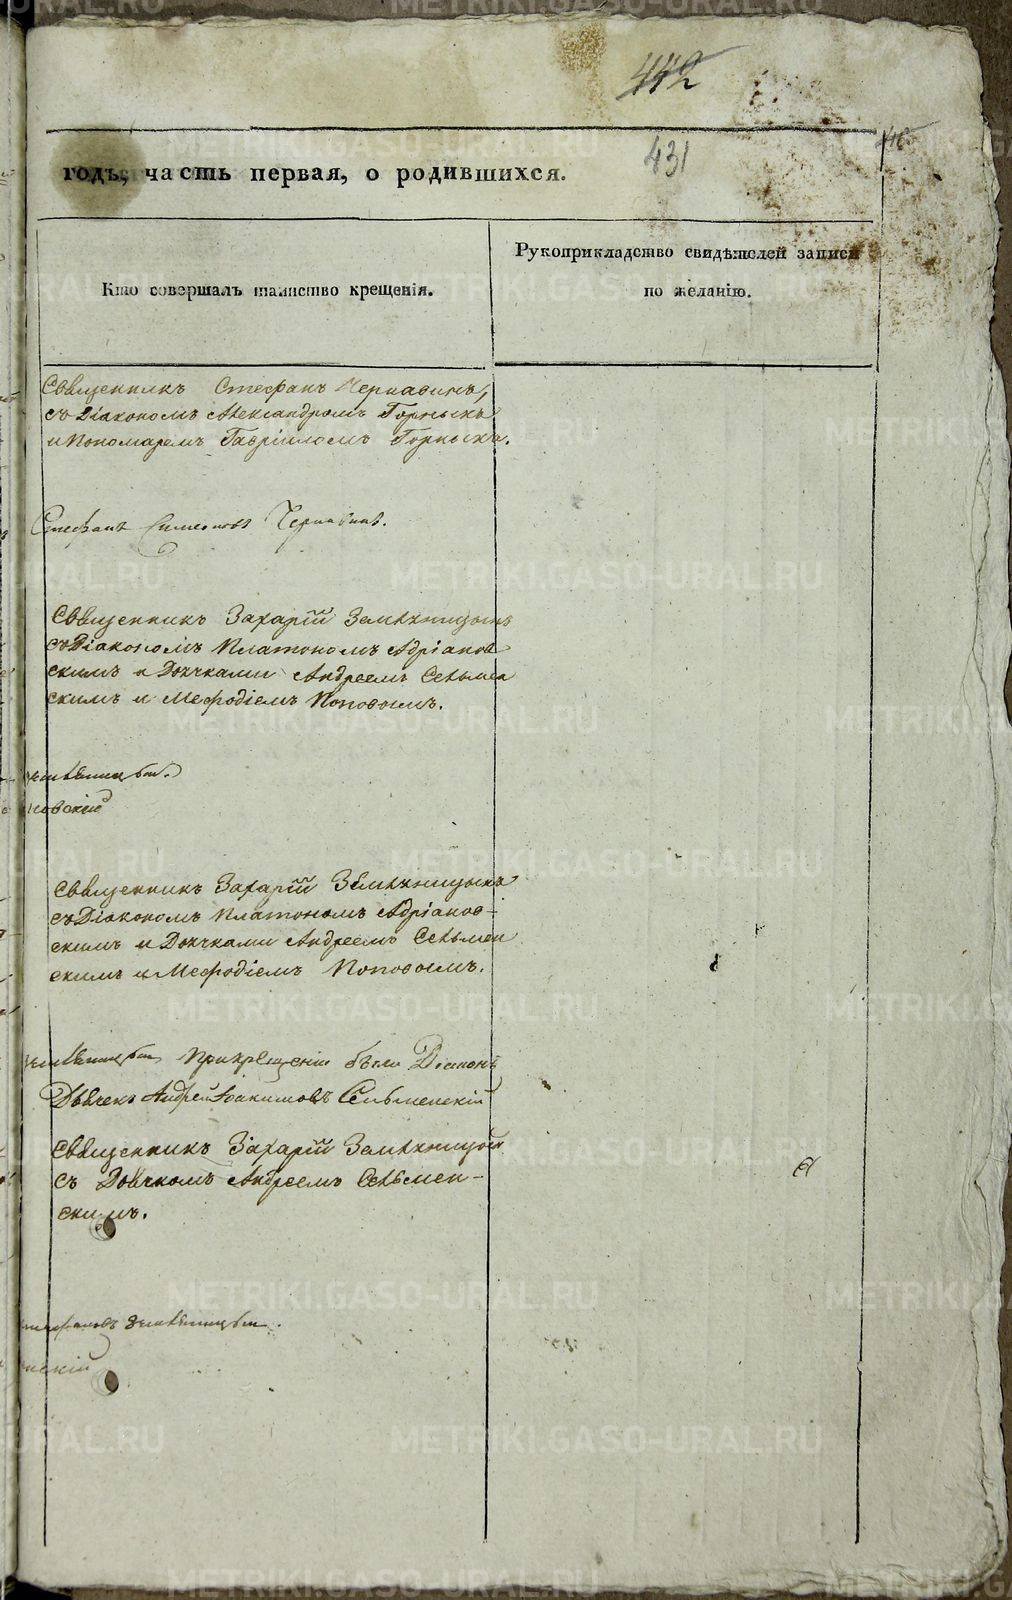 442
431
годъ, часть первая, о родившихся.
Кто совершалъ таинство крещенія.
Рукоприкладство свидѣтелей записи
по желанію.
Священникъ Стефанъ Чернавинъ,
съ Діакономъ Александромъ Горныхъ
и Пономаремъ Гавріиломъ Горныхъ.
Стефанъ Симеоновъ Чернавинъ.
Священникъ Захарій Земляницынъ
съ Діакономъ Платономъ Адріанов
скимъ и Дьячками Андреемъ Сельмен
скимъ и Мефодіемъ Поповымъ.
новскій
Священникъ Захарій Земляницынъ
съ Діакономъ Платономъ Адріанов-
скимъ и Дьячками Андреемъ Сельмен
скимъ и Мефодіемъ Поповымъ.
при крещеніи были Діаконъ
Дьячекъ Андрей Іоакимовъ Сельменскій
Священникъ Захарій Земляницынъ
съ Дьячкомъ Андреемъ Сельмен-
скимъ.
нскій
METRIKI.GASO-URAL.RU